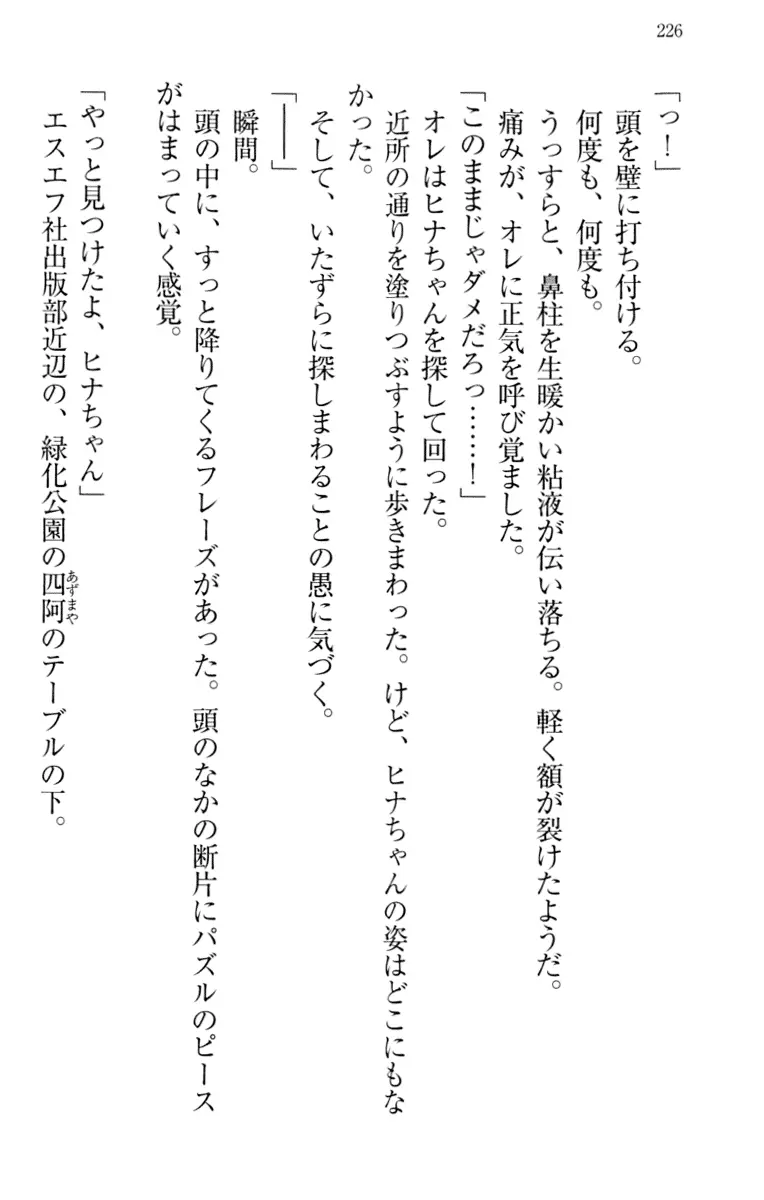 226
「っ！」
頭を壁に打ち付ける。
何度も、何度も。
うっすらと、鼻柱を生暖かい粘液が伝い落ちる。軽く額が裂けたようだ。
痛みが、オレに正気を呼び覚ました。
「このままじゃダメだろっ……！」
オレはヒナちゃんを探して回った。
近所の通りを塗りつぶすように歩きまわった。けど、ヒナちゃんの姿はどこにもな
かった。
そして、いたずらに探しまわることの愚に気づく。
「――」
瞬間。
頭の中に、すっと降りてくるフレーズがあった。頭のなかの断片にパズルのピース
がはまっていく感覚。
「やっと見つけたよ、ヒナちゃん」
エスエフ社出版部近辺の、緑化公園の四阿あずまやのテーブルの下。